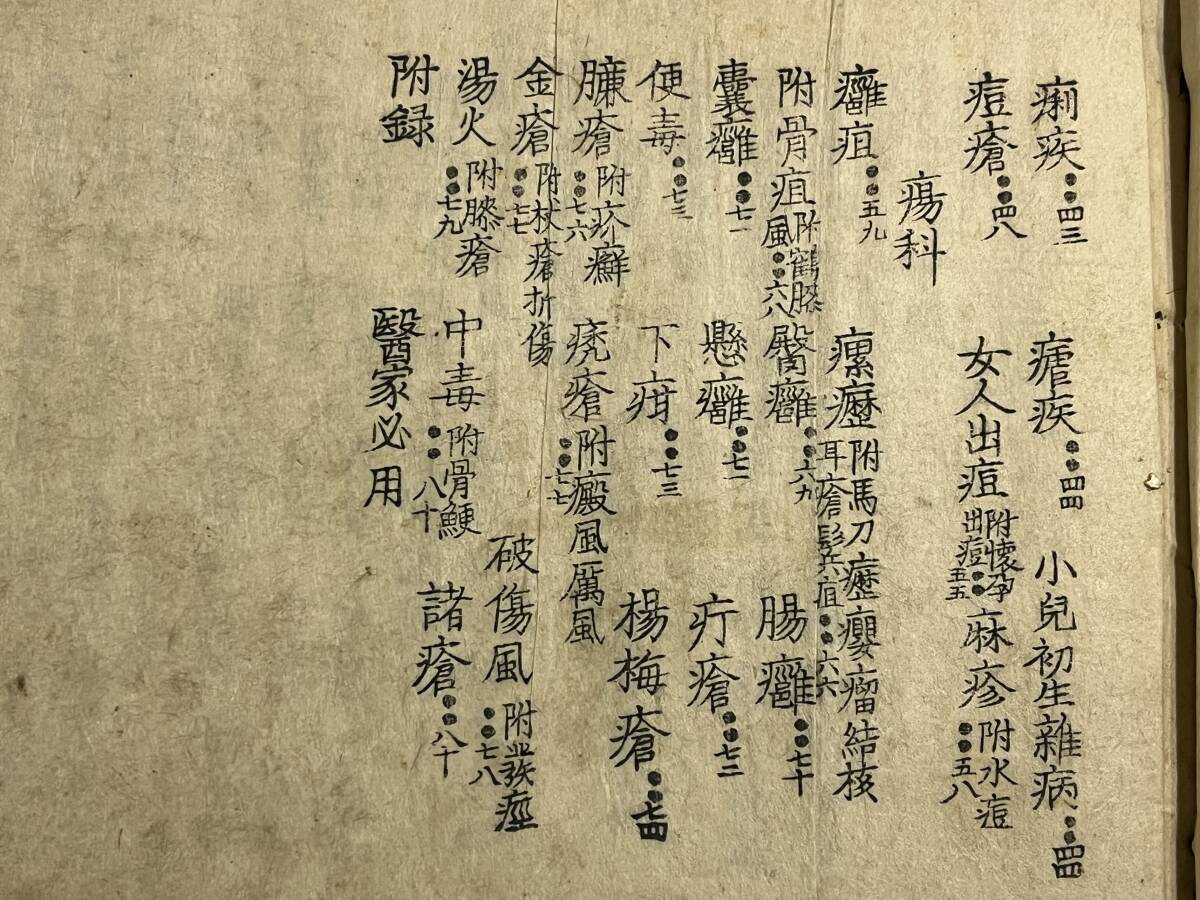 痢疾：：四三　瘧疾：：四四　小兒初生雜病：：四四
痘瘡：：四八　女人出痘附懷孕出痘：：五五　麻疹附水痘：：五八
瘍科
癰疽：：五九　瘰癧附馬刀癧癭瘤結核耳瘡髭兵疽：：六六
附骨疽附鶴膝風：：六八　臀癰：：六九　腸癰：：七十
囊癰：：七一　懸癰：：七一　疔瘡：：七二
便毒：：七三　下疳：：七三　楊梅瘡：：七四
臁瘡附疥癬：：七六　禿瘡附癜風厲風：：七七
金瘡附杖瘡折傷：：七七　破傷風附痙：：七八
湯火附膝瘡：：七九　中毒附骨鯁：：八十　諸瘡：：八十
附録　醫家必用